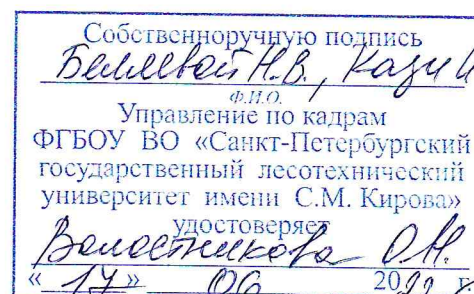 Собственноручную подпись
Беляевой Н.В., Кази И
Ф.И.О.
Управление по кадрам
ФГБОУ ВО «Санкт-Петербургский
государственный лесотехнический
университет имени С.М. Кирова»
удостоверяет
О.И.
« 17 » 06 2022 г.